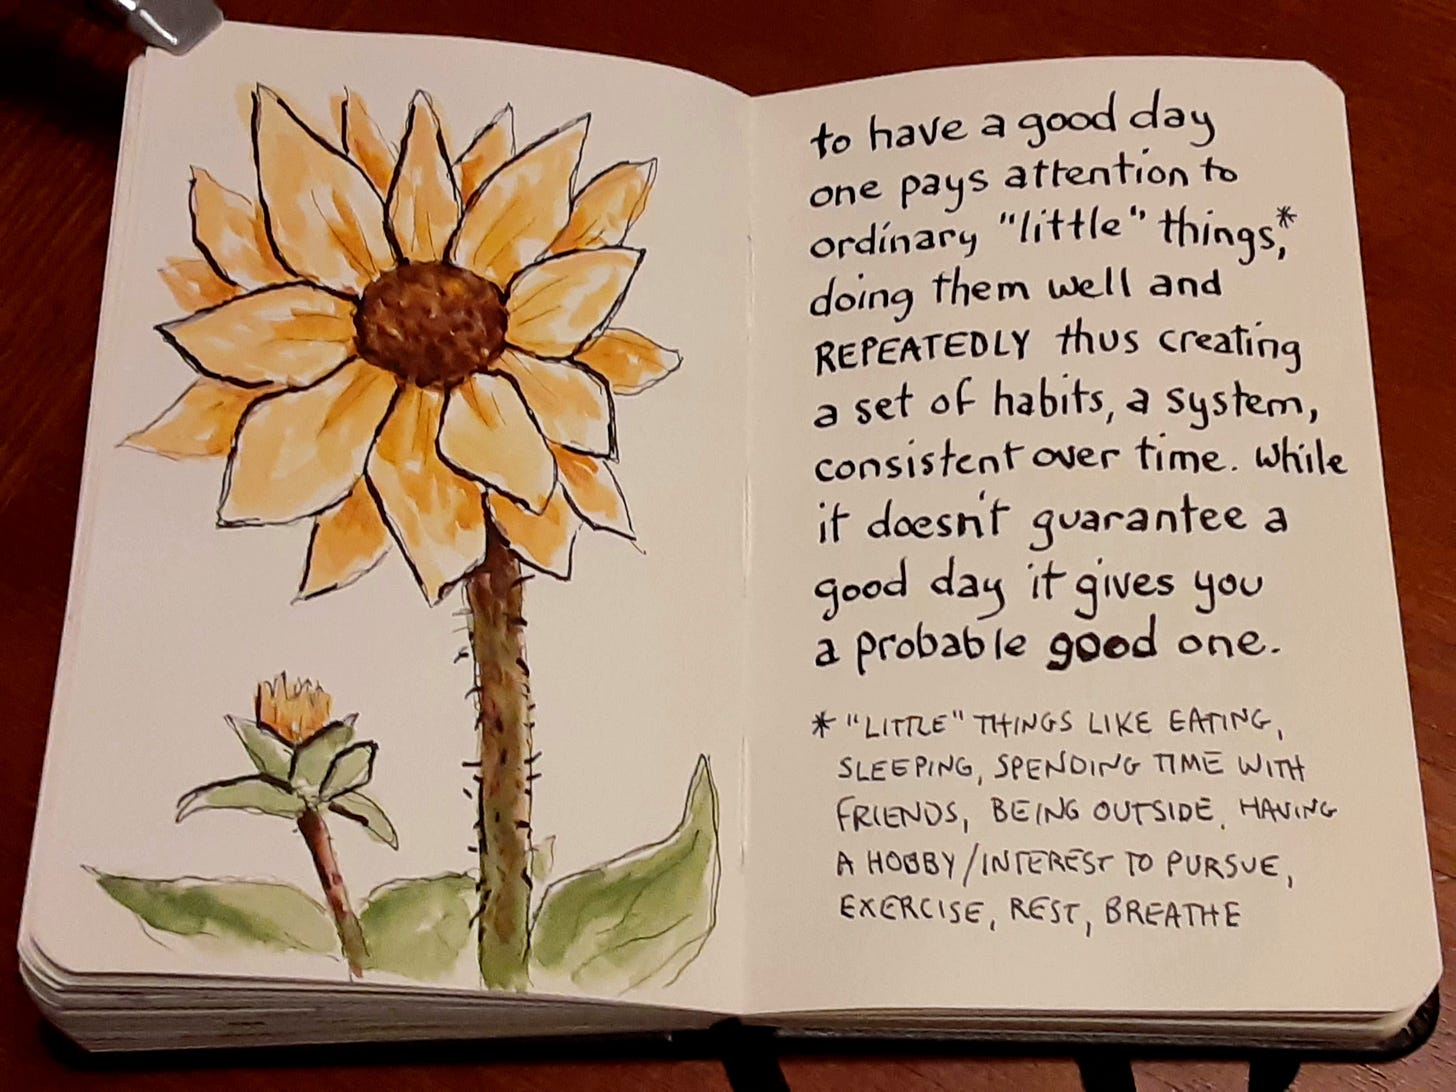 to have a good day
one pays attention to
ordinary "little" things,*
doing them well and
REPEATEDLY thus creating
a set of habits, a system,
consistent over time. While
it doesn't guarantee a
good day it gives you
a probable good one.
* "LITTLE" THINGS LIKE EATING,
SLEEPING, SPENDING TIME WITH
FRIENDS, BEING OUTSIDE, HAVING
A HOBBY/INTEREST TO PURSUE,
EXERCISE, REST, BREATHE